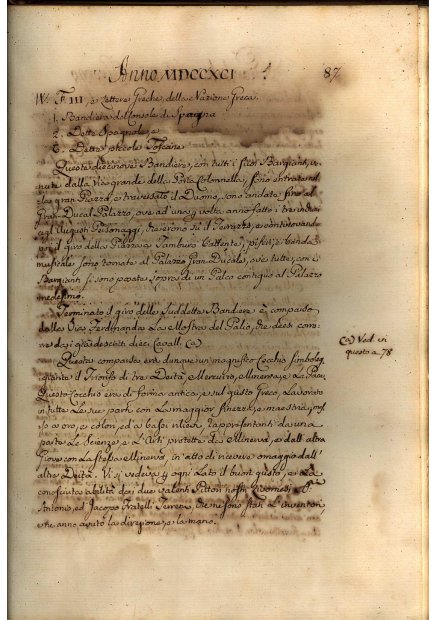 Anno MDCCXCI
87
N. F. III, e Lettere Greche, della Nazione Greca
1. Bandiera del Console di Spagna
2. Dette Spagnole, e
6. Dette piccole Toscane
Queste diecinove Bandiere, con tutti i suoi Bargianti, ve-
nute dalla Via grande della Porta Colonnella, sono entrate nel-
la gran Piazza, e traversato il Duomo, sono andate fino al
Gran Ducal Palazzo, ove ad una, p volta anno fatto i tre inchini
agl'Augusti Personaggi, che erono su il Terrazzo, e continovando
il giro della Piazza a Tamburo Battente, pifferi, e banda
musicale sono tornate al Palazzo Gran Ducale, ove tutte, con i
Bargianti si sono posate sopra di un Palco contiguo al Palazzo
medesimo.
Terminato il giro delle suddette Bandiere è comparso
dalla Via Ferdinanda La Mostra del Palio, che deesi corre-
re dagi descritti dieci Cavalli. (a)
(a) Ved. in
questo a 78
Questa comparsa era dunque un magnifico Cocchio simboleg-
giante il Trionfo di tre Deità, Mercurio, Minerva, e La Pace.
Questo Cocchio era di forma antica, e sul gusto Greco, Lavorato
in tutte Le sue parti con La maggior finezza, e maestria, mes-
so a oro, e colori, ed a bassi rilievi rappresentanti da una
parte Le Scienze, e L'Arti protette da Minerva, e dall'altra
Giove con La stessa Minerva in atto di ricevere omaggio dall'
altre Deità. Vi si vedeva p ogni Lato il buon gusto, e La
conosciuta abilità dei due valenti Pittori nostri Livornesi
Antonio, ed Jacopo Fratelli Terreni, che ne sono stati gl'inventori
che anno avuto la direzione, e la mano.